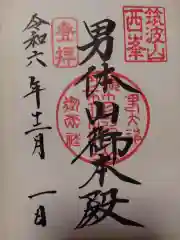 筑波山
西峯
登拝
男体山御本殿
令和六年十二月一日